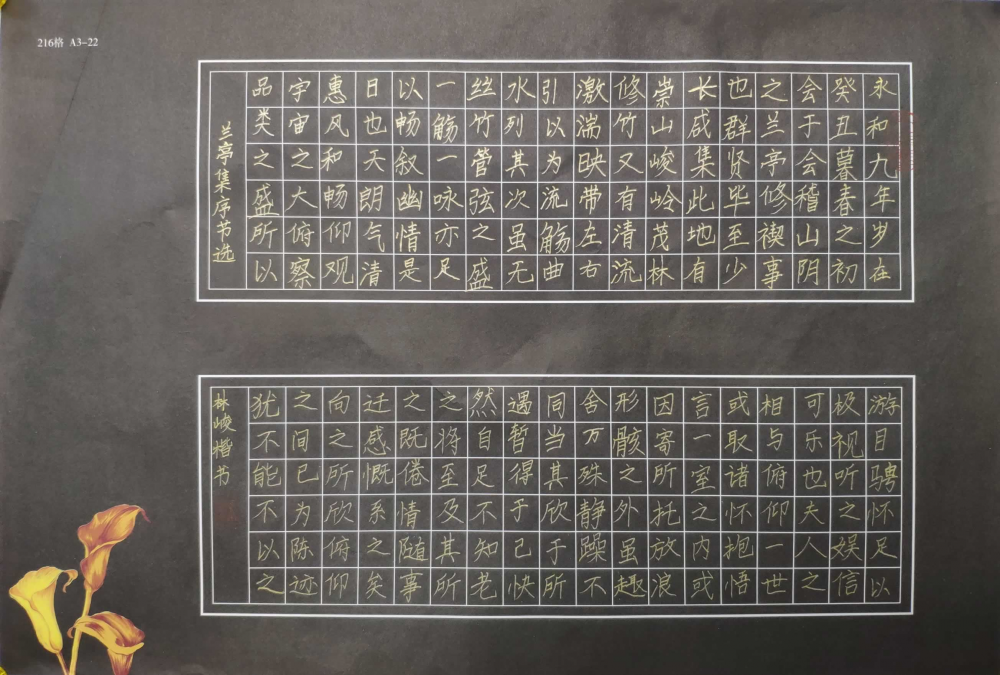 216格 A3-22
永和九年岁在
癸丑暮春之初
会于会稽山阴
之兰亭修禊事
也群贤毕至少
长咸集此地有
崇山峻岭茂林
修竹又有清流
激湍映带左右
引以为流觞曲
水列其次虽无
丝竹管弦之盛
一觞一咏亦足
以畅叙幽情是
日也天朗气清
惠风和畅仰观
宇宙之大俯察
品类之盛所以
兰亭集序节选
游目骋怀足以
极视听之娱信
可乐也夫人之
相与俯仰一世
或取诸怀抱悟
言一室之内或
因寄所托放浪
形骸之外虽趣
舍万殊静躁不
同当其欣于所
遇暂得于己快
然自足不知老
之将至及其所
之既倦情随事
迁感慨系之矣
向之所欣俯仰
之间已为陈迹
犹不能不以之
林峻楷书